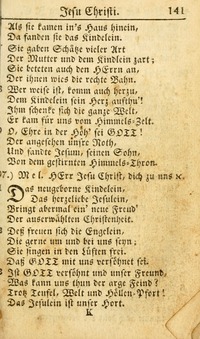 Jesu Christi. 141
Als sie kamen in's Haus hinein,
Da fanden sie das Kindelein.
Sie gaben Schätze vieler Art
Der Mutter und dem Kindlein zart;
Sie beteten auch den HErrn an,
Der ihnen wies die rechte Bahn.
Wer weise ist, komm auch herzu,
Dem Kindelein sein Herz aufthu'!
Ihm schenke sich die ganze Welt,
Er kam für uns vom Himmels-Zelt.
O, Ehre in der Höh' sei GOTT!
Der angesehen unsre Noth,
Und sandte Jesum, seinen Sohn,
Von dem gestirnten Himmels-Thron.
7.) Mel. HErr Jesu Christ, dich zu uns ꝛc.
Das neugeborne Kindelein,
Das herzliebe Jesulein,
Bringt abermal ein' neue Freud'
Der auserwählten Christenheit.
Deß freuen sich die Engelein,
Die gerne um und bei uns seyn;
Sie singen in den Lüften frei,
Daß GOTT mit uns versöhnet sei.
3 Ist GOTT versöhnt und unser Freund,
Was kann uns thun der arge Feind?
Trotz Teufel, Welt und Höllen-Pfort!
Das Jesulein ist unser Hort.
K